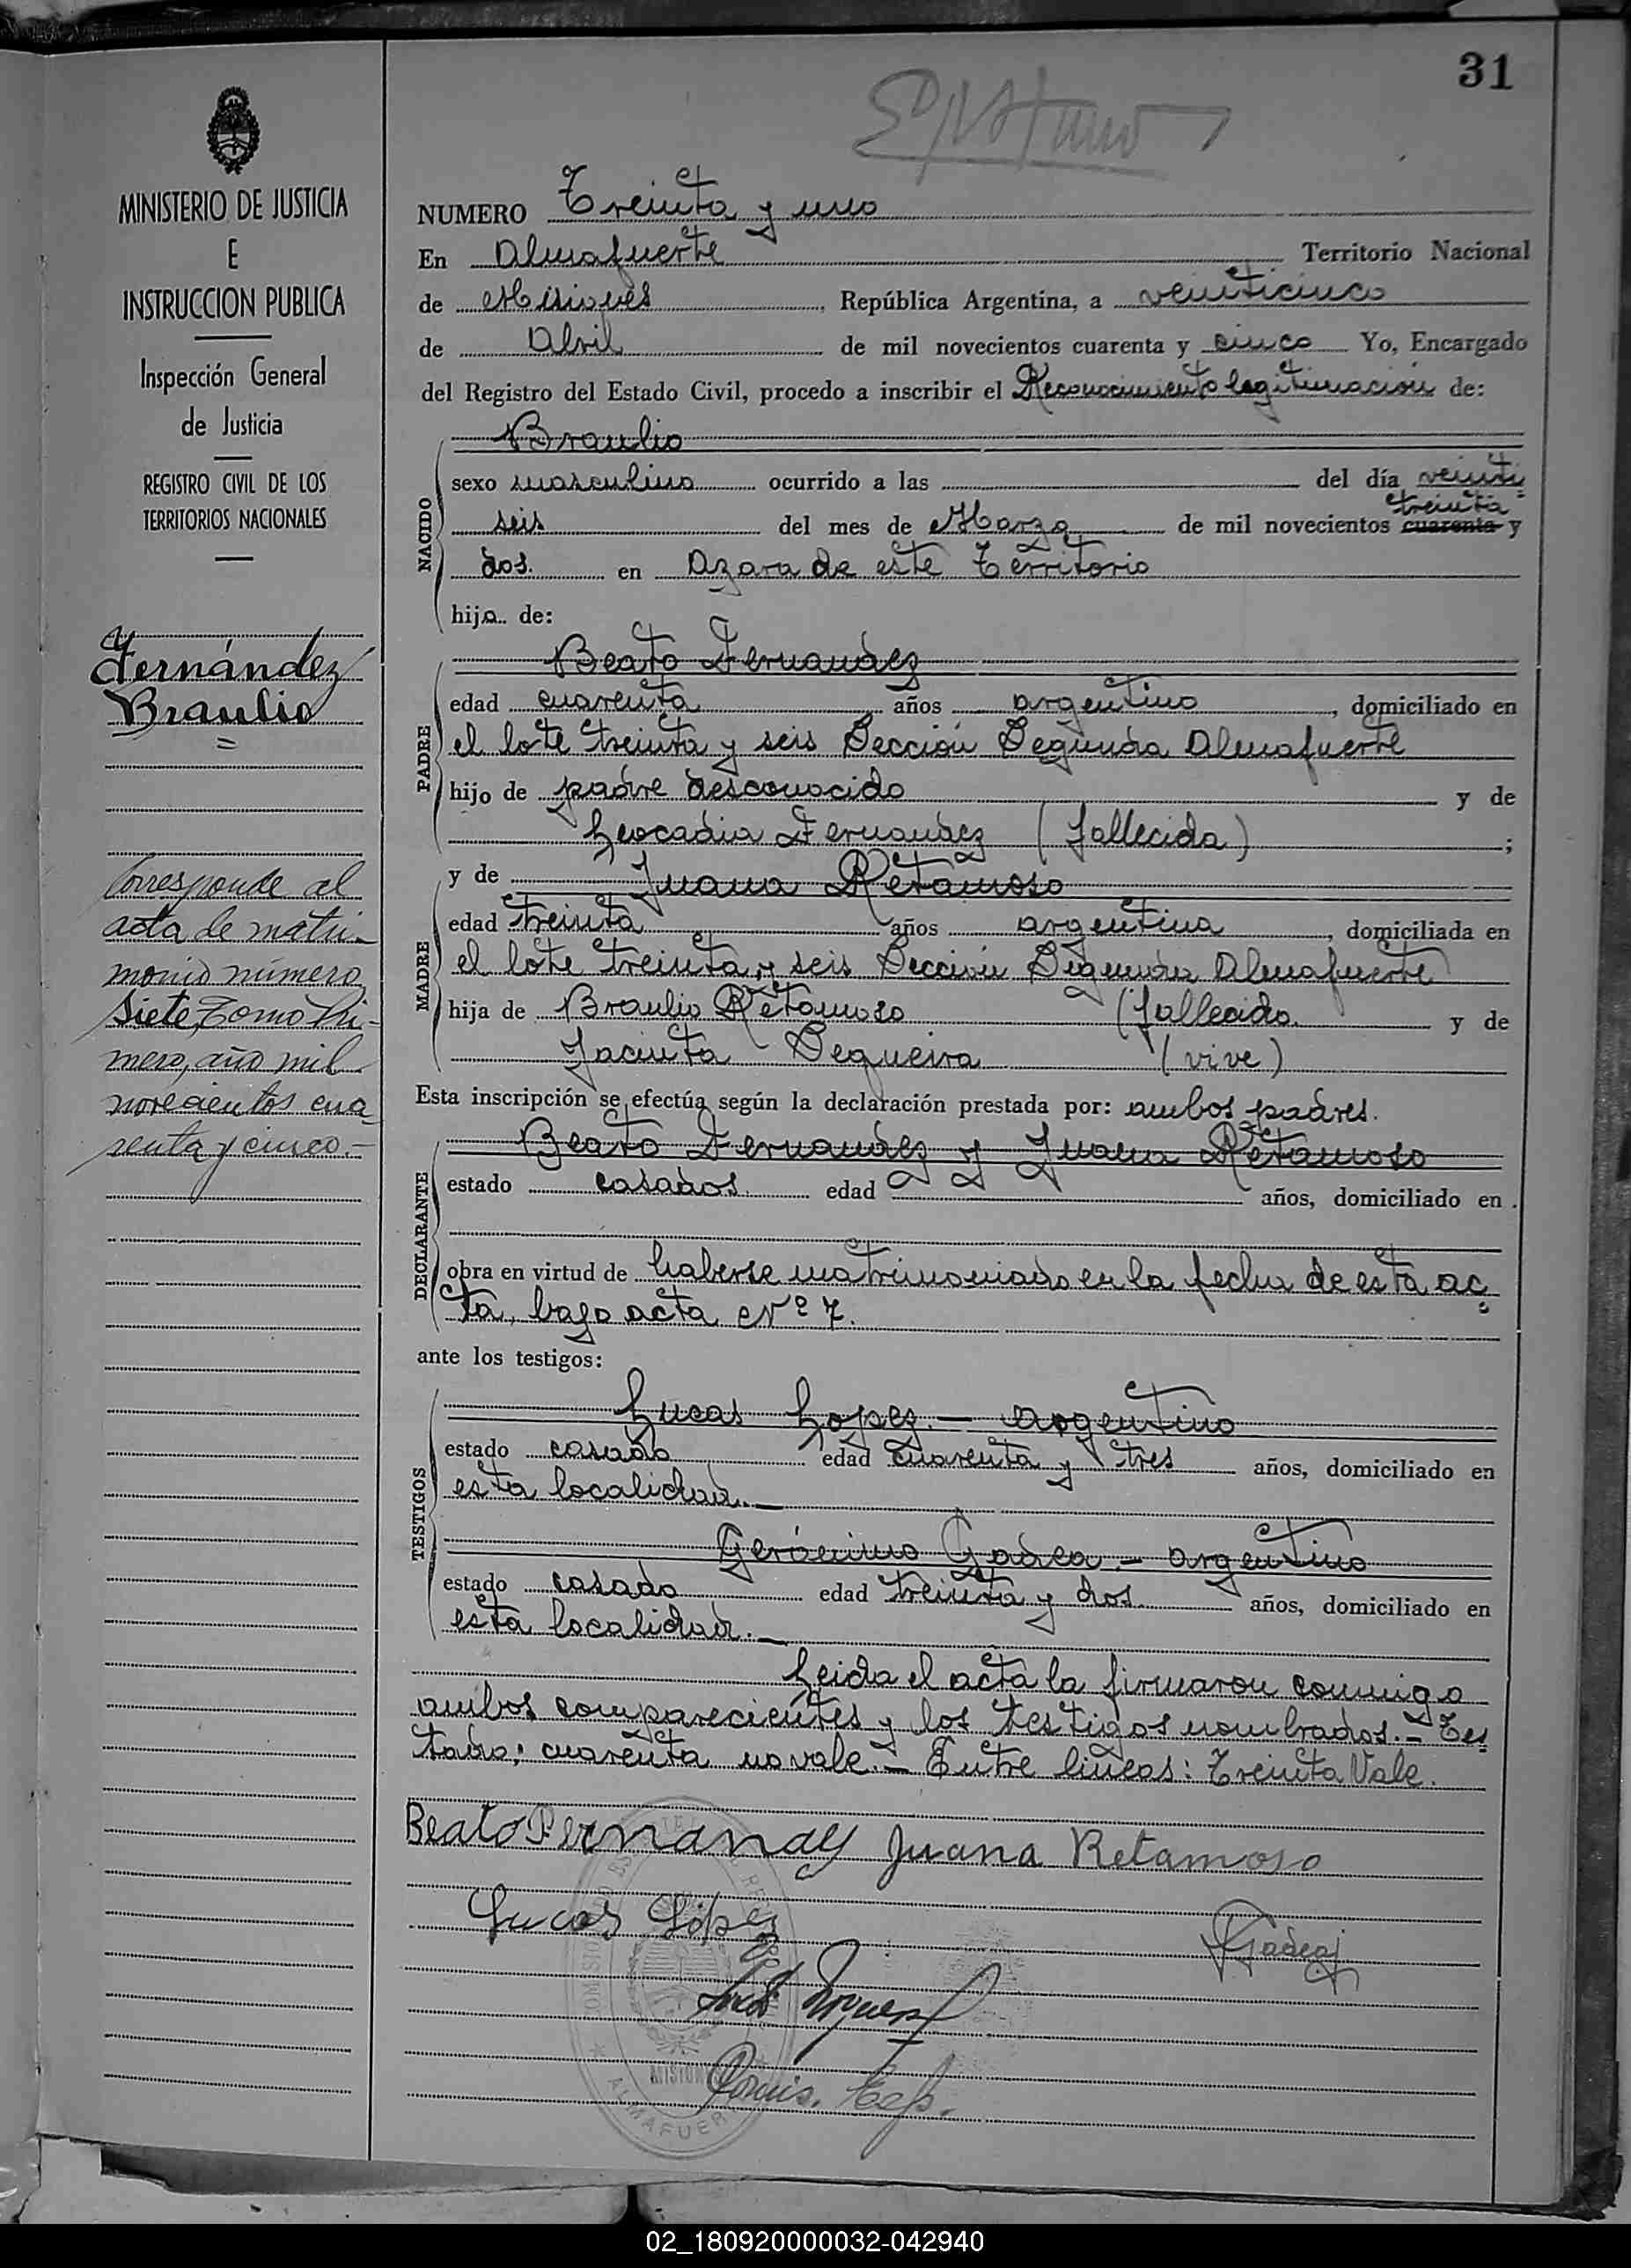 31
MINISTERIO DE JUSTICIA
E
INSTRUCCION PUBLICA
Inspección General
de Justicia
REGISTRO CIVIL DE LOS
TERRITORIOS NACIONALES
Fernández
Braulio
Corresponde al
acta de matri-
monio número
Siete, Tomo Pri-
mero, año mil
novecientos cua
renta y cinco.-
NUMERO Treinta y uno
En Almafuerte Territorio Nacional
de Misiones, República Argentina, a veinticinco
de Abril de mil novecientos cuarenta y cinco Yo, Encargado
del Registro del Estado Civil, procedo a inscribir el Reconocimiento legitimación de:
Braulio
NACIDO
sexo masculino ocurrido a las del día veinti
treinta
seis del mes de Marzo de mil novecientos cuarenta y
dos. en Azara de este Territorio
hijo de:
Beato Fernandez
PADRE
edad cuarenta años argentino, domiciliado en
el lote treinta y seis Sección Segunda Almafuerte
hijo de padre desconocido y de
Leocadia Fernandez (fallecida);
y de Juana Retamoso
MADRE
edad treinta años argentina, domiciliada en
el lote treinta y seis Sección Segunda Almafuerte
hija de Braulio Retamoso (fallecido. y de
Jacinta Sequeira (vive)
Esta inscripción se efectúa según la declaración prestada por: ambos padres.
Beato Fernandez y Juana Retamoso
DECLARANTE
estado casados. edad años, domiciliado en
obra en virtud de haberse matrimoniado en la fecha de esta ac
ta, bajo acta Nº 7.
ante los testigos:
TESTIGOS
Lucas Lopez.- argentino
estado casado edad cuarenta y tres años, domiciliado en
esta localidad.-
Gerónimo Gadea.- argentino
estado casado edad treinta y dos. años, domiciliado en
esta localidad.-
Leida el acta la firmaron conmigo
ambos comparecientes y los testigos nombrados.- Tes
tado: cuarenta no vale.- Entre lineas: Treinta Vale.
Beato Fernandez Juana Retamoso
Lucas López
Gadea
MISIONES
ALMAFUERTE
02_180920000032-042940